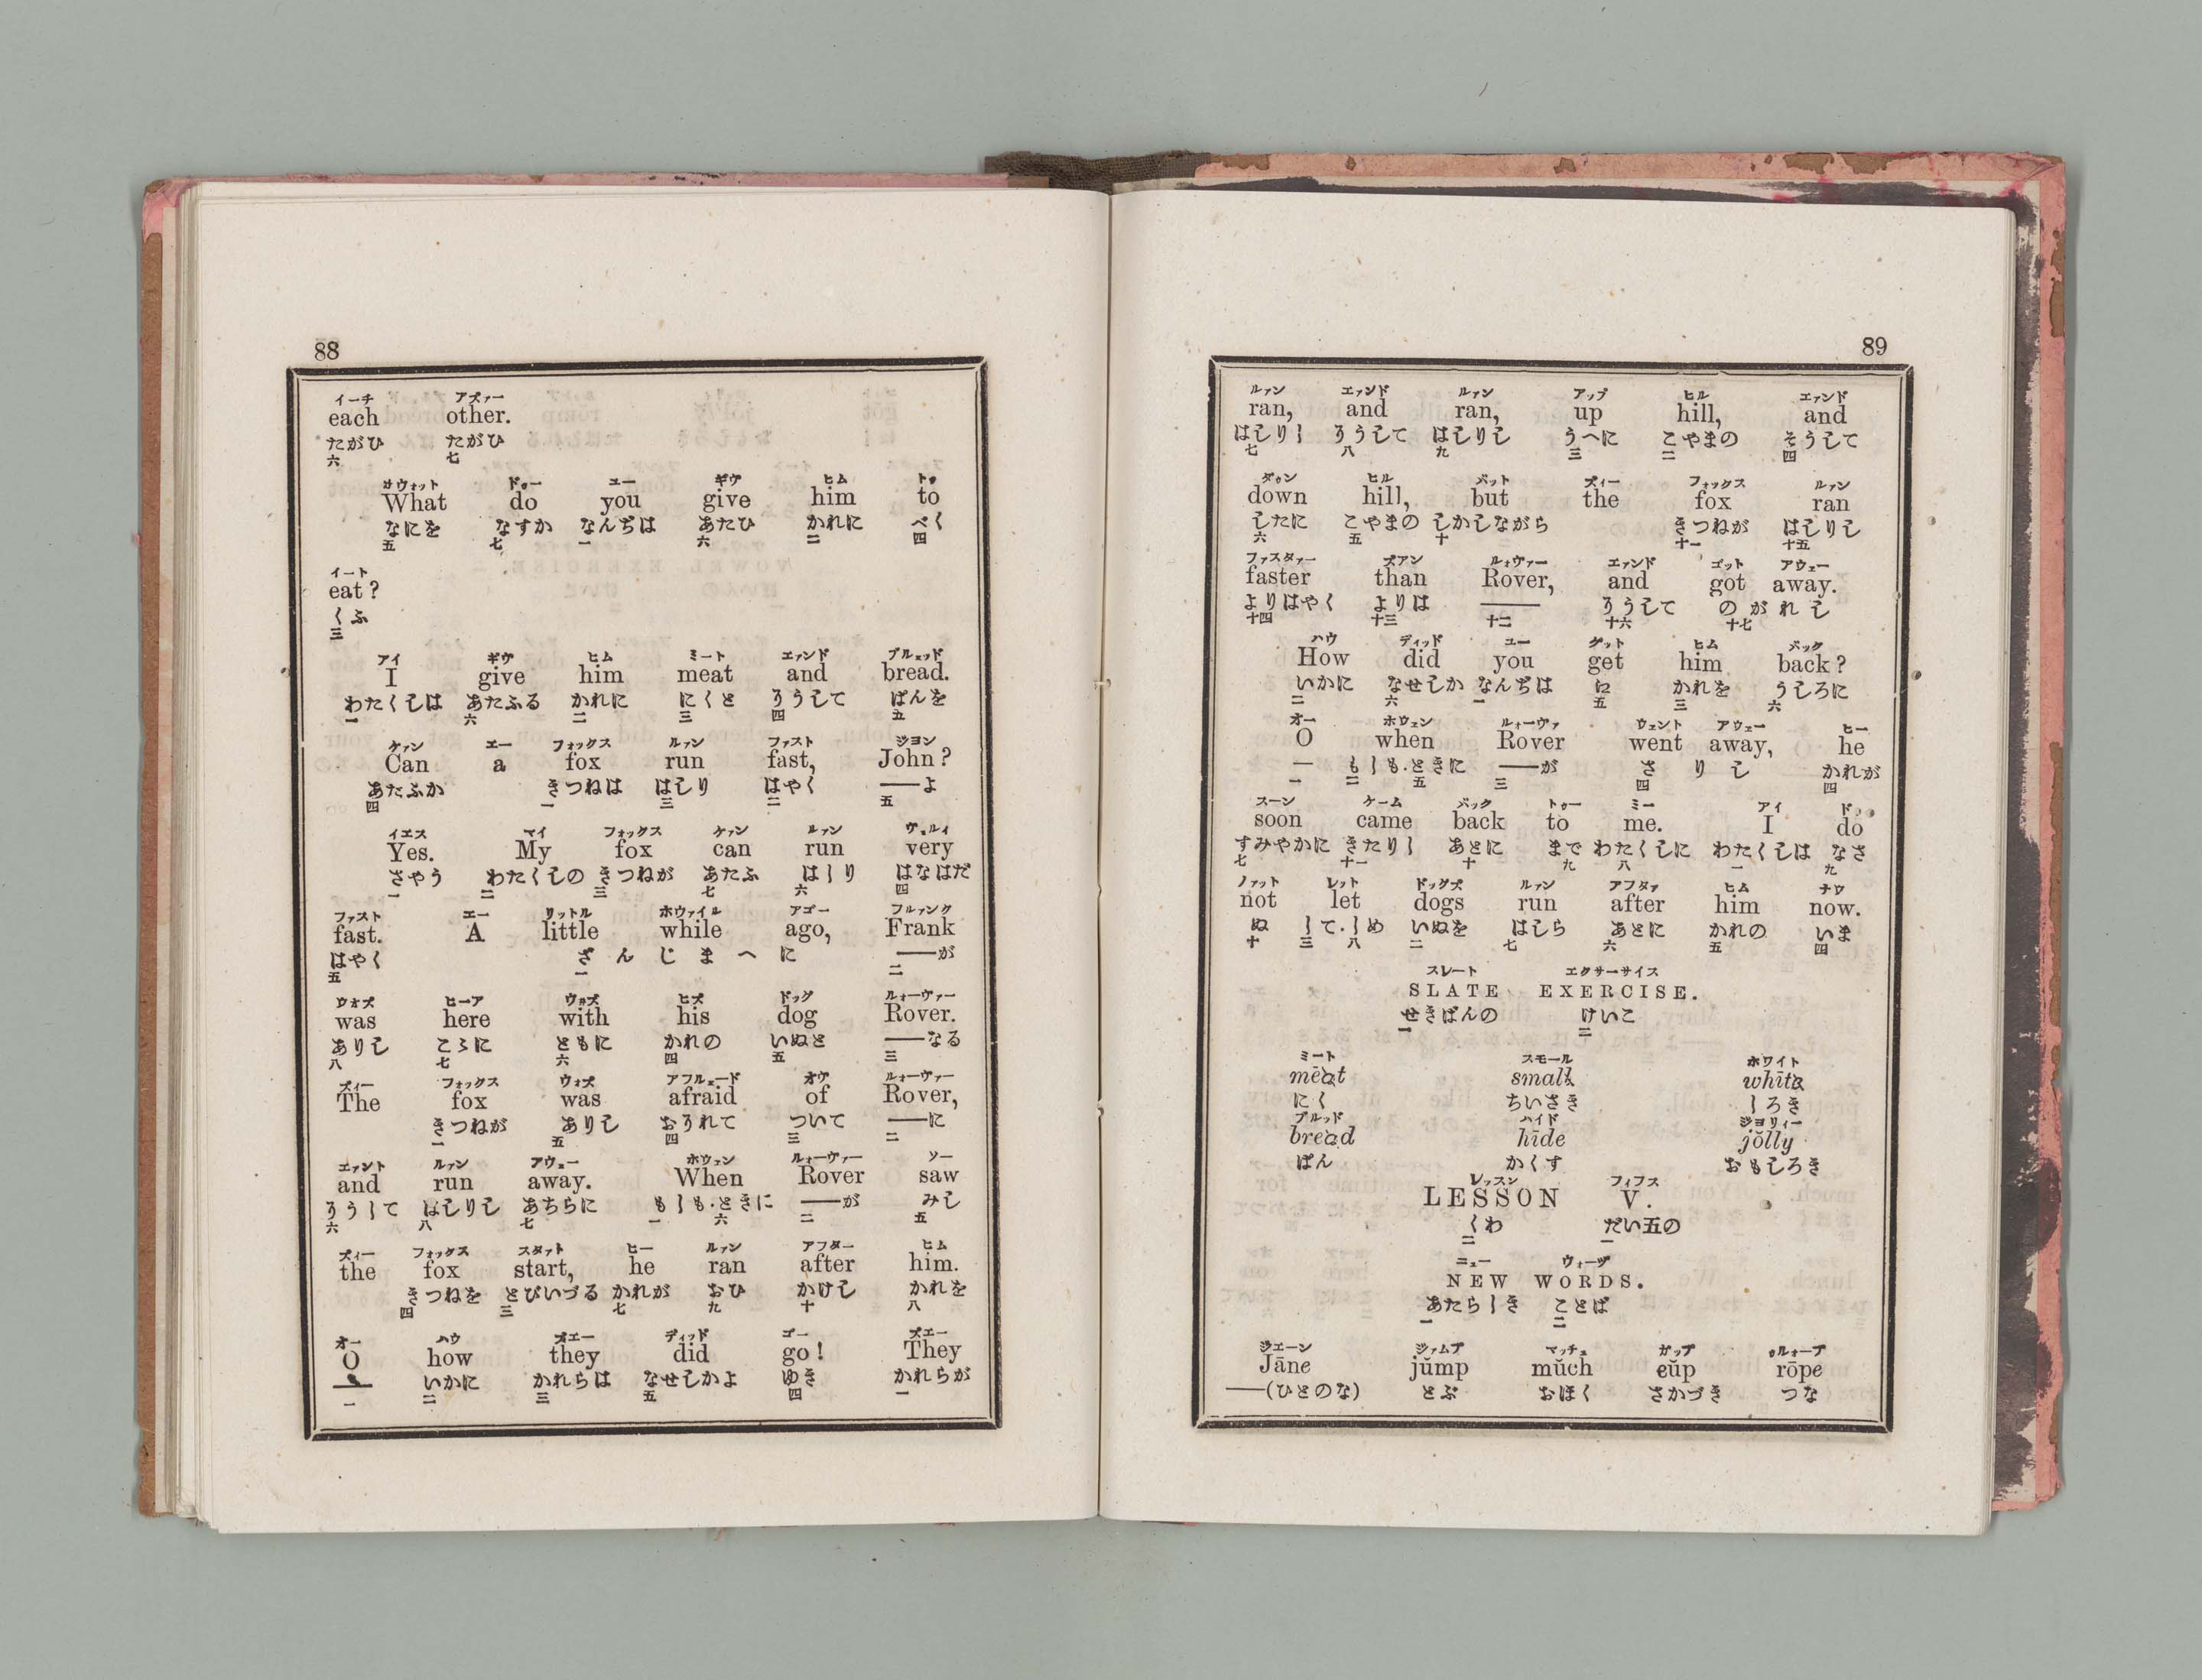 88
イーチ アズァー
each other.
たがひ たがひ
六 七
ホウォット ドゥー ユー ギヴ ヒム トゥ
What do you give him to
なにを なすか なんぢは あたひ かれに べく
五 七 一 六 二 四
イート
eat?
くふ
三
アイ ギヴ ヒム ミート エァンド ブルェッド
I give him meat and bread.
わたくしは あたふる かれに にくと そうして ぱんを
一 六 二 三 四 五
ケァン エー フォックス ルァン ファスト ジヨン
Can a fox run fast, John?
あたふか きつねは はしり はやく ——よ
四 一 三 二 五
イエス マイ フォックス ケァン ルァン ヴェルィ
Yes. My fox can run very
さやう わたくしの きつねが あたふ はしり はなはだ
一 二 三 七 六 四
ファスト エー リットル ホウァイル アゴー フルァンク
fast. A little while ago, Frank
はやく ざんじまへに ——が
五 一 二
ウォズ ヒーア ウィズ ヒズ ドッグ ルォーヴァー
was here with his dog Rover.
ありし こゝに ともに かれの いぬと ——なる
八 七 六 四 五 三
ズィー フォックス ウォズ アフルェード オヴ ルォーヴァー
The fox was afraid of Rover,
きつねが ありし おそれて ついて ——に
一 五 四 三 二
エァント ルァン アウェー ホウェン ルォーヴァー ソー
and run away. When Rover saw
そうして はしりし あちらに もしも・ときに ——が みし
六 八 七 一 六 二 五
ズィー フォックス スタァト ヒー ルァン アフター ヒム
the fox start, he ran after him.
きつねを とびいづる かれが おひ かけし かれを
四 三 七 九 十 八
オー ハウ ズエー ディッド ゴー ズエー
O how they did go! They
—— いかに かれらは なせしかよ ゆき かれらが
一 二 三 五 四 一
89
ルァン エァンド ルァン アップ ヒル エァンド
ran, and ran, up hill, and
はしりし そうして はしりし うへに こやまの そうして
七 八 九 三 二 四
ダゥン ヒル バット ズィー フォックス ルァン
down hill, but the fox ran
したに こやまの しかしながら きつねが はしりし
六 五 十 十一 十五
ファスタァー ズアン ルォヴァー エァンド ゴット アウェー
faster than Rover, and got away.
よりはやく よりは —— そうして のがれし
十四 十三 十二 十六 十七
ハウ ディッド ユー ゲット ヒム バック
How did you get him back?
いかに なせしか なんぢは に かれを うしろに
二 六 一 五 三 六
オー ホウェン ルォーヴァ ウェント アウェー ヒー
O when Rover went away, he
— もしも・ときに ——が さりし かれが
一 二 五 三 四 四
スーン ケーム バック トゥー ミー アイ ドゥ
soon came back to me. I do
すみやかに きたりし あとに まで わたくしに わたくしは なさ
七 十一 十 九 八 一 九
ノァット レット ドッグズ ルァン アフタァ ヒム ナウ
not let dogs run after him now.
ぬ して・しめ いぬを はしら あとに かれの いま
十 三 八 二 七 六 五 四
スレート エクサーサイス
SLATE EXERCISE.
せきばんの けいこ
一 二
ミート スモール ホワイト
mēat small whīte
にく ちいさき しろき
ブルッド ハイド ジヨリィー
bread hīde jŏlly
ぱん かくす おもしろき
レッスン フィフス
LESSON V.
くわ だい五の
二 一
ニュー ウォーヅ
NEW WORDS.
あたらしき ことば
一 二
ジエーン ジァムプ マッチュ カップ ゥルォープ
Jāne jŭmp mŭch cŭp rōpe
——(ひとのな) とぶ おほく さかづき つな